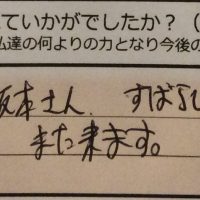 ていかがでしたか？（
私達の何よりの力となり今後の
坂本さん、すばらし
また来ます。